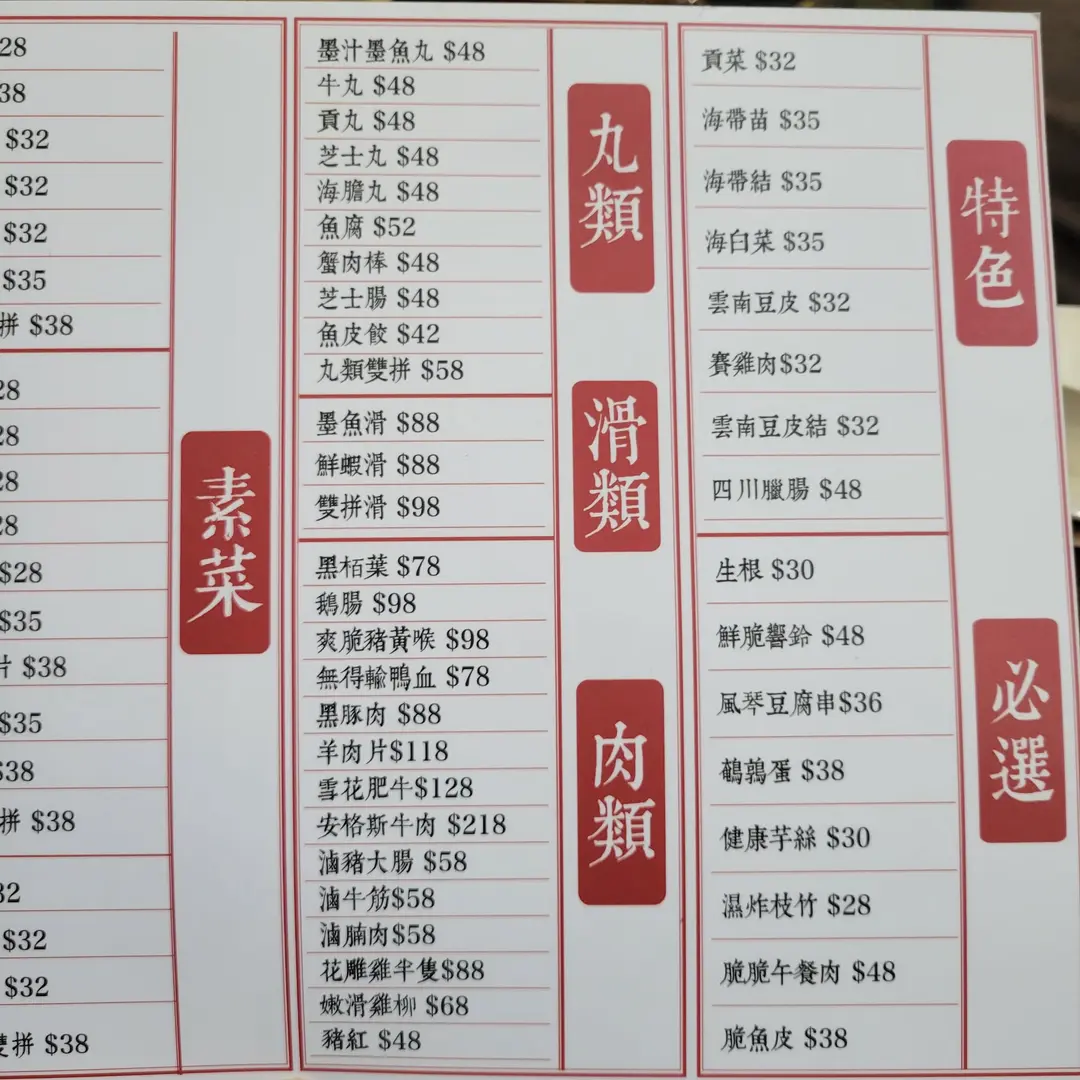 28
38
$32
$32
$32
$35
拼 $38
28
28
28
28
$28
$35
片 $38
$35
$38
拼 $38
32
$32
$32
雙拼 $38
素菜
墨汁墨魚丸 $48
牛丸 $48
貢丸 $48
芝士丸 $48
海膽丸 $48
魚腐 $52
蟹肉棒 $48
芝士腸 $48
魚皮餃 $42
丸類雙拼 $58
丸類
墨魚滑 $88
鮮蝦滑 $88
雙拼滑 $98
滑類
黑栢葉 $78
鵝腸 $98
爽脆豬黃喉 $98
無得輸鴨血 $78
黑豚肉 $88
羊肉片$118
雪花肥牛$128
安格斯牛肉 $218
滷豬大腸 $58
滷牛筋$58
滷腩肉$58
花雕雞半隻$88
嫩滑雞柳 $68
豬紅 $48
肉類
貢菜 $32
海帶苗 $35
海帶結 $35
海白菜 $35
雲南豆皮 $32
賽雞肉$32
雲南豆皮結 $32
四川臘腸 $48
特色
生根 $30
鮮脆響鈴 $48
風琴豆腐串$36
鵪鶉蛋 $38
健康芋絲 $30
濕炸枝竹 $28
脆脆午餐肉 $48
脆魚皮 $38
必選